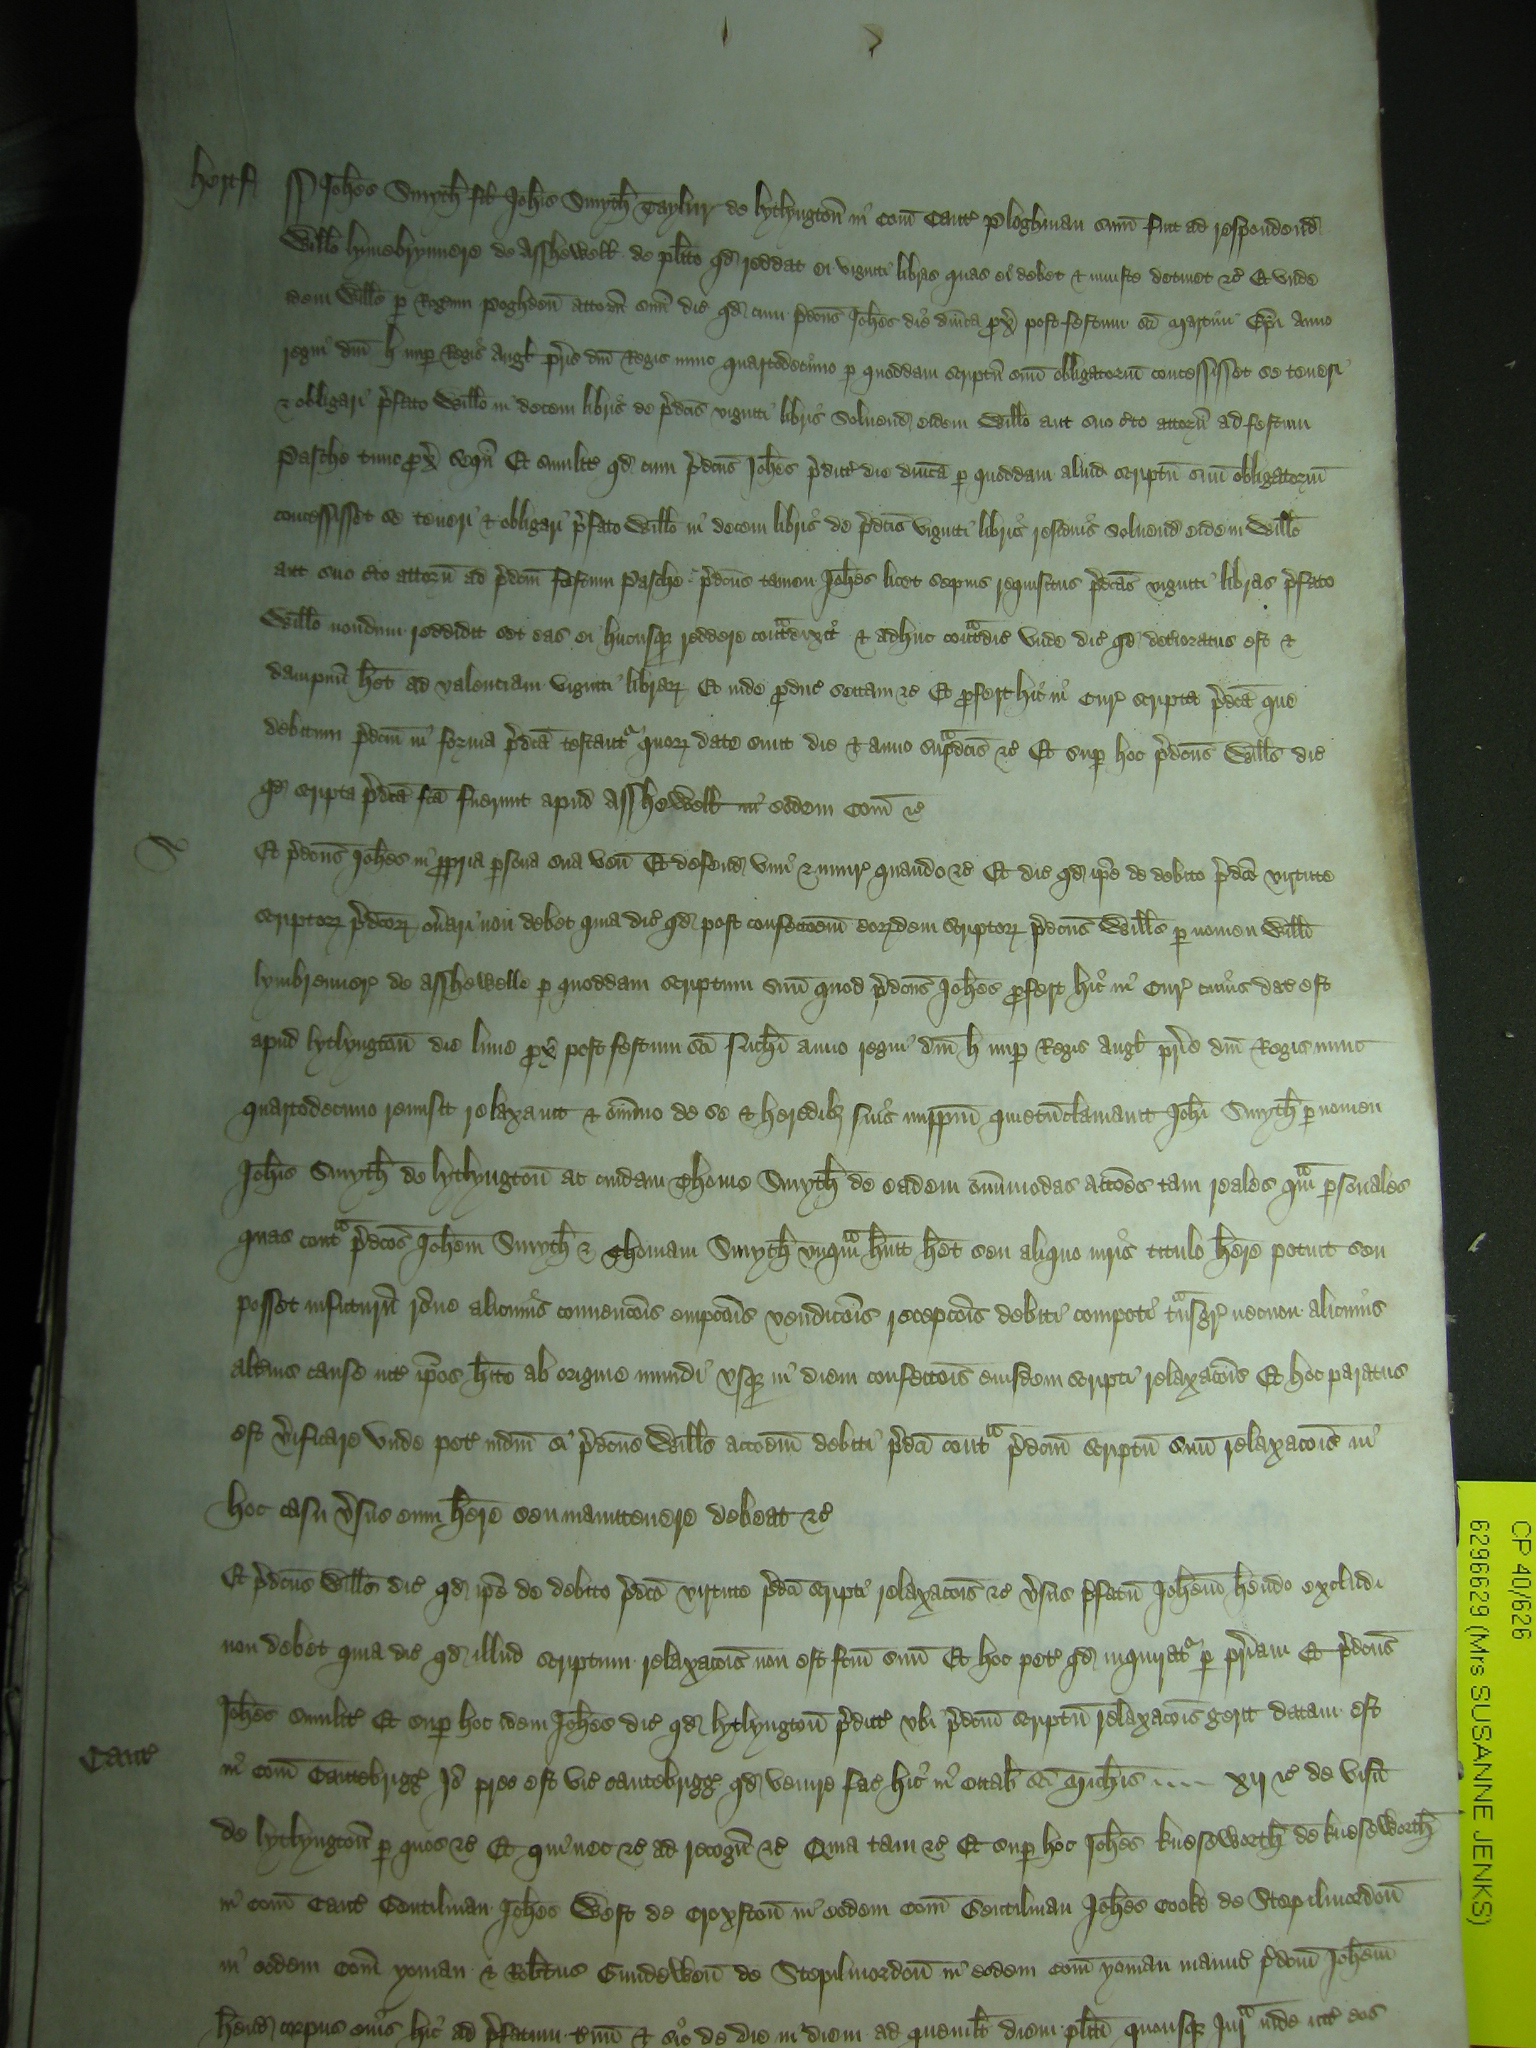 hertf
Joh̄es Smyth fił Joh̄is Smyth Taylur de lytlyngton̄ in Com̄ Cant' Ploghman sum̄ fuit ad respondend
Willo lymebrynnere de Asshewell de plito qd reddat ei viginti libras quas ei debet & iniuste detinet &c Et vnde
idem Wills p attorn̄ suū dic qd cum p̄dcus Joh̄es die dn̄ica prox̄ post festum sc̄i Martini Ep̄i Anno
regni dn̄i h nup Regis Angł pr̄is dn̄i Regis nunc quartodecimo p quoddam scriptū suū obligatoriū concessisset se teneri
& obligari p̄fato Willo in decem libris de p̄dcis viginti libris Soluend eidem Willo aut suo c̄to attorn̄ ad festum
Pasche tunc prox̄ sequn̄ Et similit' qd cum p̄dcus Joh̄es p̄dict' die dn̄ica p quoddam aliud scriptū suū obligatoriū
concessisset se teneri & obligari p̄fato Willo in decem libris de p̄dcis viginti libris residuis soluend eidem Willo
aut suo c̄to attorn̄ ad p̄dcm̄ festum Pasche p̄dcus tamen Joh̄es licet sepius requisitus p̄dcas viginti libras p̄fato
Willo nondum reddidit set eas ei hucusq reddere cont̄dixit & adhuc cont̄dic vnde dic qd det'ioratus est &
dampnū h̄et ad valenciam viginti librar Et inde produc' sectam &c Et profert hic in Cur' scripta p̄dcā que
debitum p̄dcm̄ in forma p̄dcā testant' quor date sunt die & anno sup̄dcis &c Et sup hoc p̄dcus Wills dic
qd scripta p̄dcā fcā fuerunt apud Asshewell in eodem Com̄ &c
Et p̄dcus Joh̄es in propria psona sua ven̄ Et defend vim & iniur' quando &c Et dic qd ip̄e de debito p̄dco virtute
scriptor p̄dcor on̄ari non debet quia dic qd post confeccoem̄ eordem scriptor p̄dcus Wills p nomen Willi
lymbrenner' de Asshewelle p quoddam scriptum suū quod p̄dcus Joh̄es profert hic in Cur' cuius dat' est
apud lytlyngton̄ die lune prox̄ post festum sc̄i anno regni dn̄i h nup Regis Angł pr̄is dn̄i Regis nunc
quartodecimo remisit relaxauit & om̄ino de se & heredib suis imppm̄ quietūclamauit Joh̄i Smyth p nomen
Joh̄is Smyth de lytlyngton̄ ac cuidam Thome Smyth de eadem om̄imodas acco̅es tam reales qm̄ psonales
quas cont̄ p̄dcos Joh̄em Smyth & Thomam Smyth vnqm̄ h̄uit h̄et seu aliquo iuris titulo h̄ere potuit seu
posset infuturū rōne alicuius convencois empcois vendicois recepcois debiti compoti t̄nsgr' necnon alicuius
alt'ius cause int' ip̄os h̄ite ab origine mundi vsq in diem confeccois eiusdem scripti relaxacois Et hoc paratus
est v̄ificare vnde pet' iudm̄ si p̄dcus Wills acco̅em̄ debiti p̄dci cont̄ p̄dcm̄ scriptū suū relaxacois in
hoc casu v̄sus eum h̄ere seu manutenere debeat &c
Et p̄dcus Wills dic qd ip̄e de debito p̄dco virtute p̄dci scripti relaxacois &c v̄sus p̄fatū Joh̄em h̄endo excludi
non debet quia dic qd illud scriptum relaxacois non est fcm̄ suū Et hoc pet' qd inquirat' p pr̄iam Et p̄dcus
Joh̄es similit' Et sup hoc idem Joh̄es dic qd lytlyngton̄ p̄dict' vbi p̄dcm̄ scriptū relaxacois gerit datam est
Cant'
in Com̄ Cantebrigg' Jō prec' est vic' Cantebrigg' qd venire fac' hic in Octab sc̄i Mich̄is xij &c de visn̄
de lytlyngton̄ p quos &c Et qui nec &c ad recogn̄ &c Quia tam &c Et sup hoc Joh̄es kneseworth de kneseworth
in Com̄ Cant' Gentilman Joh̄es West de Croxston̄ in eodem Com̄ Gentilman Joh̄es Cooke de Stepilmordon̄
in eodem Com̄ yoman & Rob̄tus Gundewen̄ de Stepilmordon̄ in eodem Com̄ yoman manuc' p̄dcm̄ Joh̄em
h̄end corpus eius hic ad p̄fatum t'mū & sic de die in diem ad quemlt diem pliti quousq Jur̄ inde int' eos
CP 40/626
6296629 (Mrs SUSANNE JENKS)